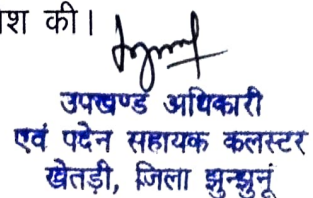 श की।
उपखण्ड अधिकारी
एवं पदेन सहायक कलस्टर
खेतड़ी, जिला झुन्झुनूं